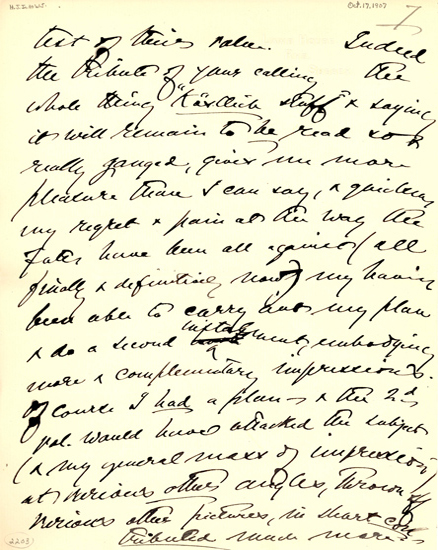 H.J. to W.J.
Oct. 17, 1907
7
test of things value. Indeed
the tribute of your calling the
whole thing "Köstlich stuff" & saying
it will remain to be read so &
really gauged, gives me more
pleasure than I can say, & quickens
my regret & pain at the way the
Fates have been all against (all
finally & definitively now) my having
been able to carry out my plan
& do a second instalment, embodying
more & complementary impressions.
Of course I had a plan — & the 2d
vol. would have attacked the subject
(& my general mass of impression)
at various other angles, thrown off
various other pictures, in short con-
tributed much more —
(2203)